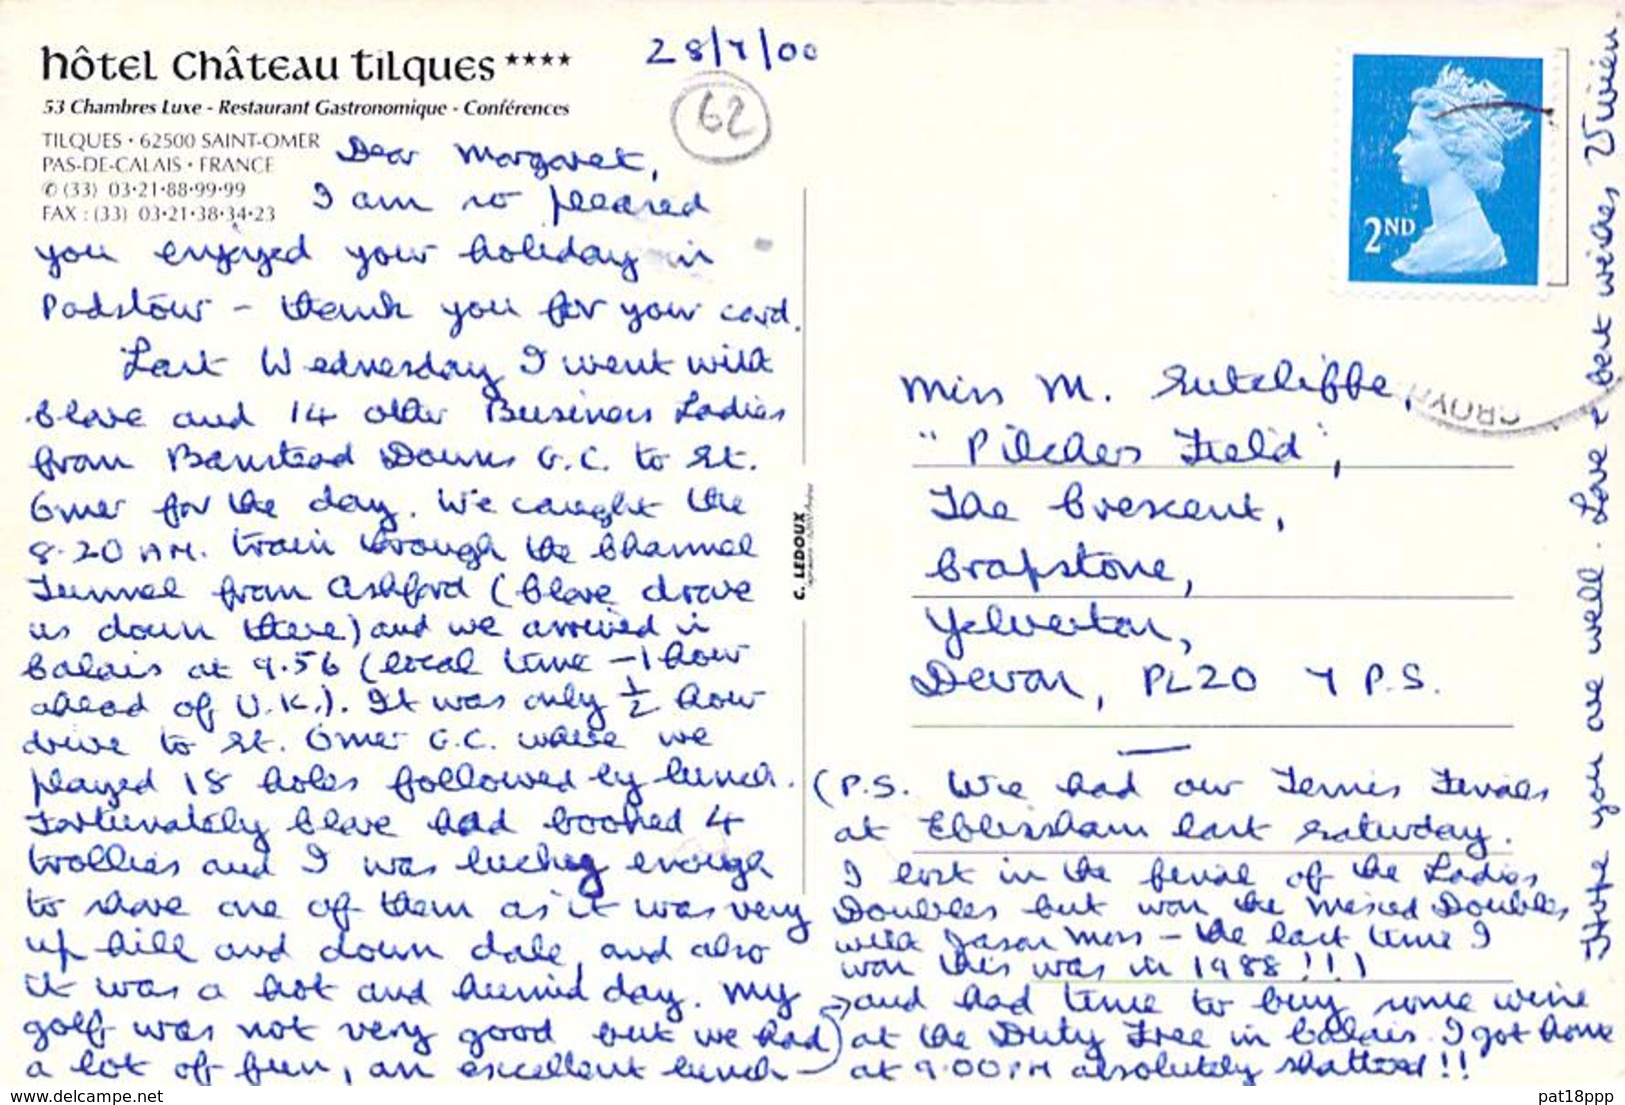 hôtel Château tilques ****
53 Chambres Luxe - Restaurant Gastronomique - Conférences
TILQUES • 62500 SAINT-OMER
PAS-DE-CALAIS • FRANCE
✆ (33) 03•21•88•99•99
FAX : (33) 03•21•38•34•23
28/7/00
62
Dear Margaret,
I am so pleased
you enjoyed your holiday in
Padstow - thank you for your card.
Last Wednesday I went with
Clare and 14 other Business Ladies
from Banstead Downs G.C. to St.
Omer for the day. We caught the
8.20 AM. train through the Channel
Tunnel from Ashford (Clare drove
us down there) and we arrived in
Calais at 9.56 (local time - 1 hour
ahead of U.K.). It was only ½ hour
drive to St. Omer G.C. where we
played 18 holes followed by lunch.
Fortunately Clare had booked 4
trollies and I was lucky enough
to share one of them as it was very
up hill and down dale, and also
it was a hot and humid day. My
golf was not very good but we had
a lot of fun, an excellent lunch
→ and had time to buy some wine
at the Duty Free in Calais. I got home
at 9.00PM absolutely shattered!!
C. LEDOUX
2ND
CROYD
Miss M. Sutcliffe,
"Pilchers Field",
The Crescent,
Crapstone,
Yelverton,
Devon, PL20 7PS.
(P.S. We had our Tennis Finals
at Ebbisham last Saturday.
I lost in the final of the Ladies
Doubles but won the Mixed Doubles
with Jason Moss - the last time I
won this was in 1988!!!)
Hope you are well. Love & best wishes Vivien
pat18ppp